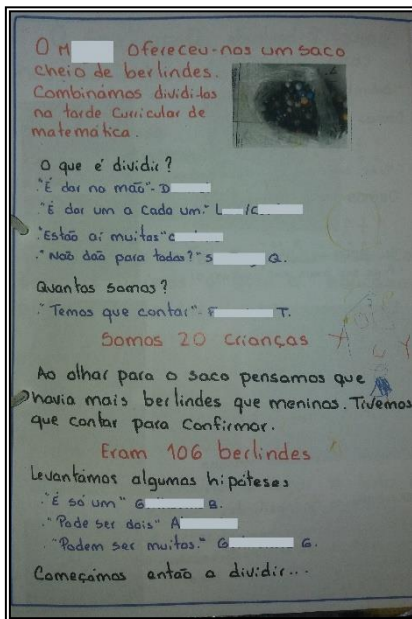 O M ofereceu-nos um saco
cheio de berlindes.
Combinámos dividi-los
na tarde Curricular de
matemática.
O que é dividir?
."É dar na mão" - D
."É dar um a Cada um." L /C
."Estão aí muitas" C
."Não dão para todos?" S Q.
Quantos somos?
."Temos que contar" - F T.
Somos 20 crianças
Ao olhar para o saco pensamos que
havia mais berlindes que meninos. Tivemos
que contar para Confirmar.
Eram 106 berlindes
Levantámos algumas hipóteses
."É só um" G B.
."Pode ser dois" A
."Podem ser muitos." G G.
Começámos então a dividir...